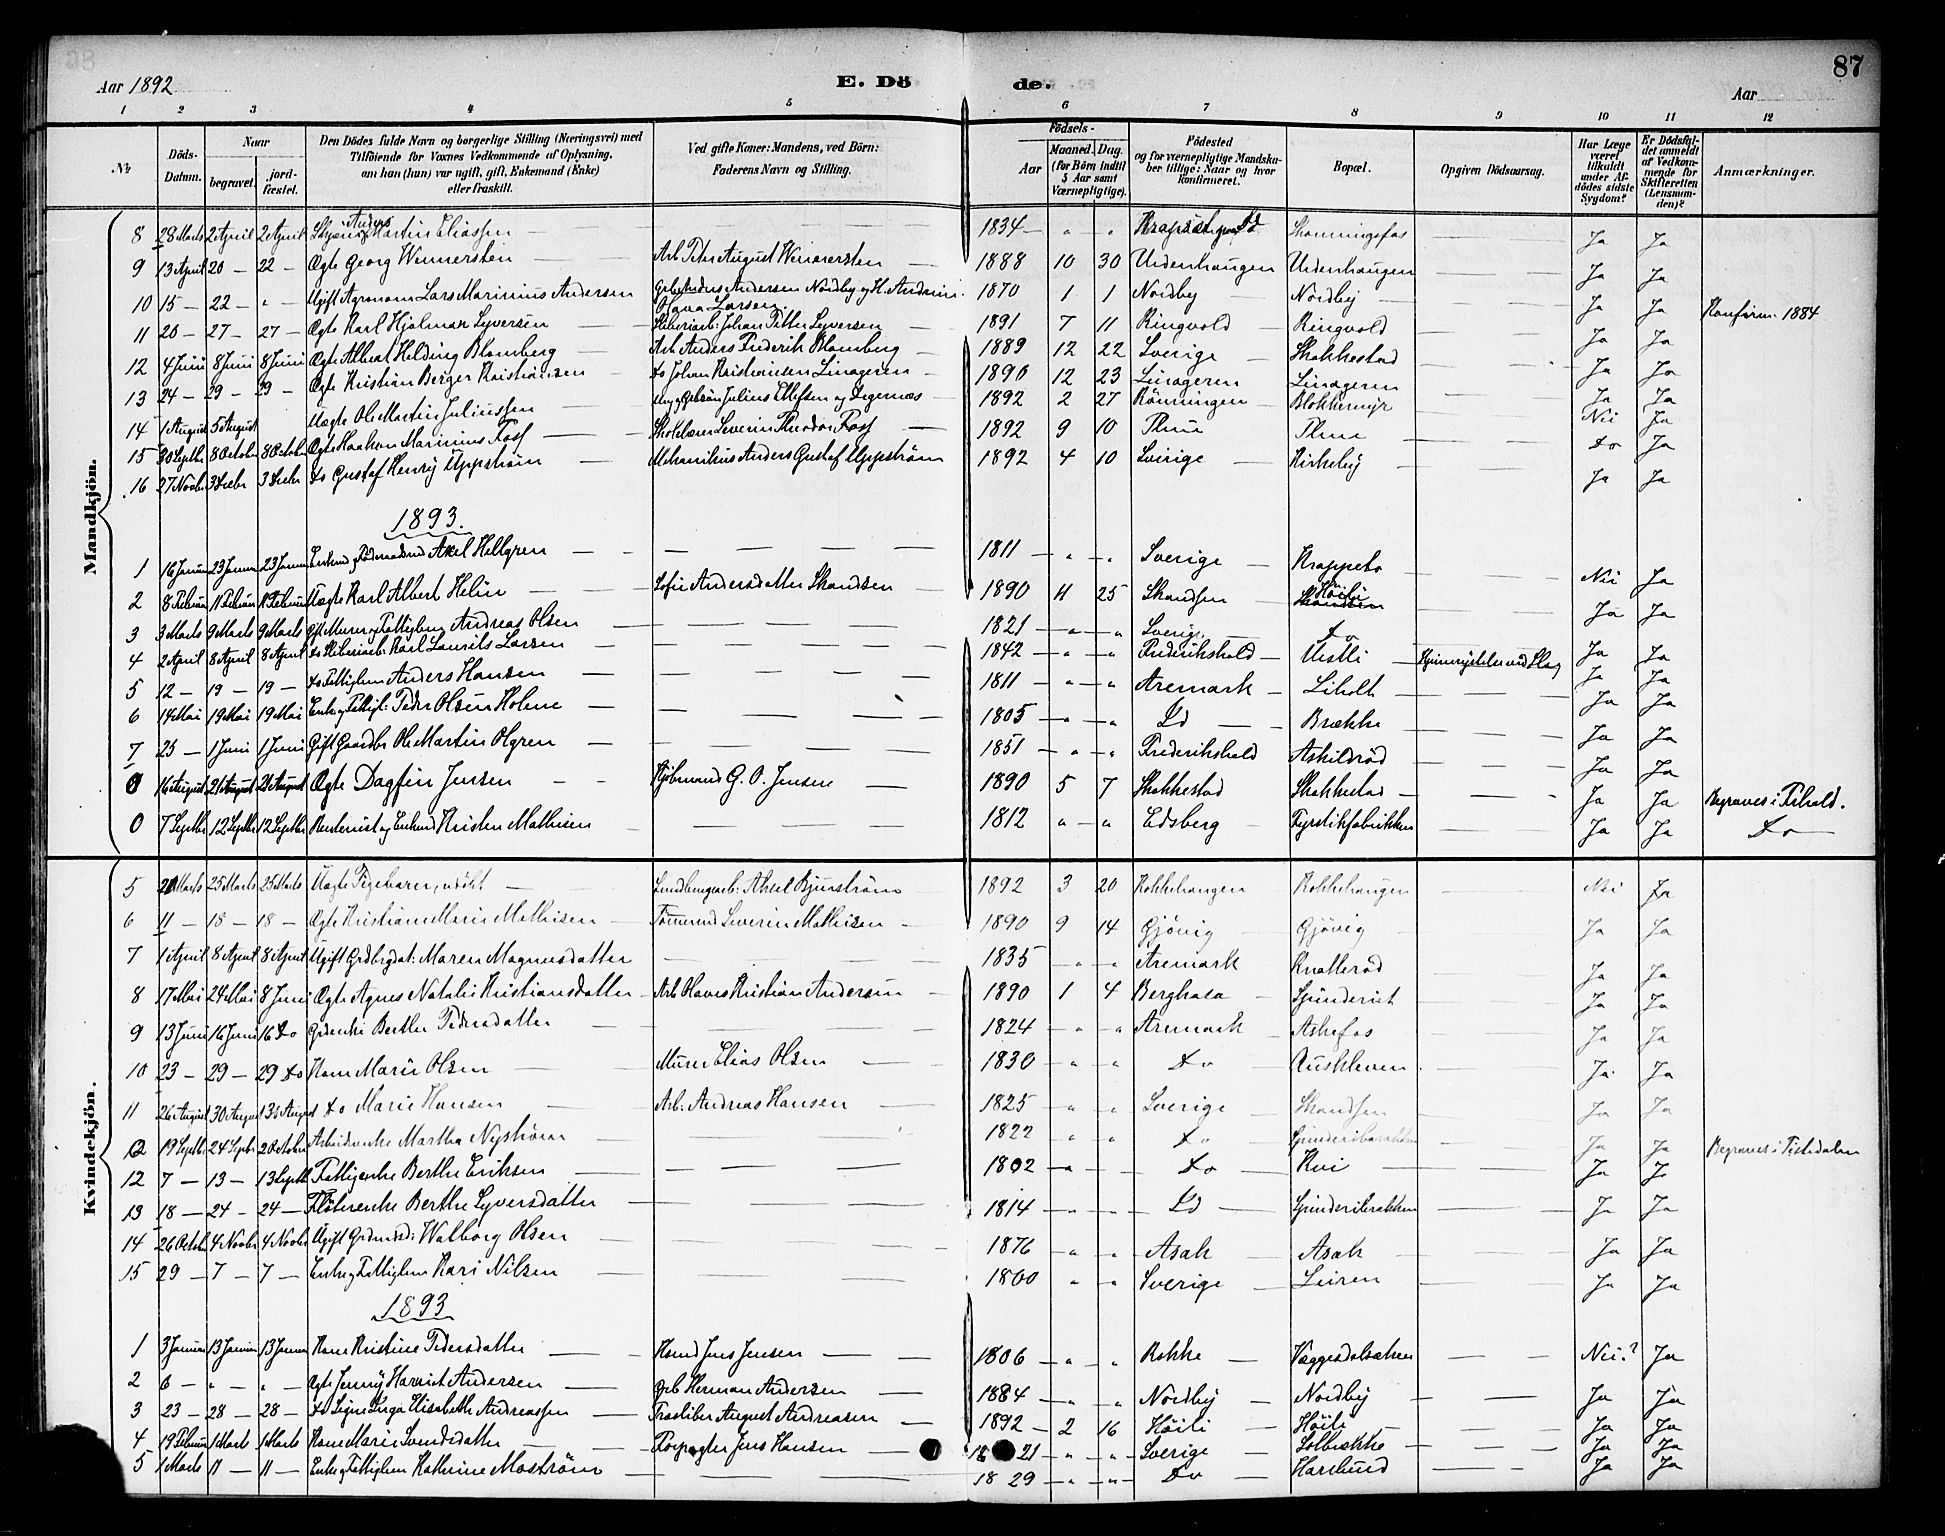 Aar 1892
E. Dö de.
Aar
87
1 2 3 4 5 6 7 8 9 10 11 12
№
Döds-Datum.
Naar
begravet.
jord-fæstet.
Den Dödes fulde Navn og borgerlige Stilling (Næringsvei) med
Tilföiende for Voxnes Vedkommende af Oplysning,
om han (hun) var ugift, gift, Enkemand (Enke)
eller fraskilt.
Ved gifte Koner: Mandens, ved Börn:
Faderens Navn og Stilling.
Födsels-
Aar
Maaned. Dag.
(for Börn indtil
5 Aar samt
Værnepligtige).
Födested
og for værnepligtige Mandska-
ber tillige: Naar og hvor
konfirmeret.
Bopæl.
Opgiven Dödsaarsag.
Har Læge
været
tilkaldt
under Af-
dödes sidste
Sygdom?
Er Dödsfal-
det anmeldt
af Vedkom-
mende for
Skifteretten
(Lensman-
den)?
Anmærkninger.
Mandkjön.
8 28 Marts 2 April 2 April Anders Martin Eliassen — 1834 — " " Id Ja Ja
9 13 April 20 — 22 — Ægte Georg Wennersten — Arb. Peter August Wennersten — 1888 10 30 Urdenhaugen Urdenhaugen — Ja Ja
10 15 — 22 — " — Ugift Lars Marinius Andersen Andersen Nordby og H. Larsen 1870 1 1 Nordby — Nordby — Ja Ja Konfirm. 1884
11 20 — 27 — 27 — Ægte Karl Hjalmar Syversen — Sliberiarb: Johan Petter Syversen — 1891 7 11 Ringvold — Ringvold — Ja Ja
12 4 Juni 8 Juni 8 Juni Ægte Albert Helding Blomberg — Arb. Anders Frederik Blomberg — 1889 12 22 Sverige — Skokkestad — Ja Ja
13 24 — 29 — 29 — Ægte Kristian Berger Kristiansen — do Johan Kristiansen — 1890 12 23 — Ja Ja
14 1 August 5 August Uægte Ole Martin Juliussen — Julius Ellefsen og — 1892 2 27 Rönningen — Blokkemyr — Nei Ja
15 30 Septbr 8 October 8 October Ægte Haakon Marinius Foss — Skolelærer Severin Theodor Foss — 1892 9 10 — do Ja
16 27 Novbr 3 Decbr 3 Decbr do Gustaf Henry Uppström — Mekanikus Anders Gustaf Uppström 1892 4 10 Sverige — Kirkeby — Ja Ja
1893.
1 16 Januar 23 Januar 23 Januar Axel Hellgren — 1811 — " " Sverige Krappeto — Nei Ja
2 8 Februar 11 Februar 11 Februar Uægte Karl Albert Helin — Sofie Andersdatter Skandsen — 1890 11 25 Skandsen — Höili — Ja Ja
3 3 Marts 9 Marts 9 Marts Gift Murer og Fattiglem Andreas Olsen — 1821 — " — " Sverige — do — Ja Ja
4 2 April 8 April 8 April do Sliberiarb. Karl Laurits Larsen — 1842 — " — " Frederikshald — Hjernerystelse ved Slag Ja Ja
5 12 — 19 — 19 — do Fattiglem Anders Hansen — 1811 — " — " Aremark — Liholt — Ja Ja
6 14 Mai 19 Mai 19 Mai Enkem. og Fattigl. Peder Olsen Holene — 1805 — " — " Id — Brække — Ja Ja
7 25 — 1 Juni 1 Juni Gift Gaardbr. Ole Martin Olgren — 1851 — " — " Frederikshald Askildröd — Ja Ja
0 16 August 21 August 21 August Ægte Dagfin Jensen — Kjöbmand G. O. Jensen — 1890 5 7 Skokkestad — Skokkestad — Ja Ja Begraves i Frhald.
0 7 Septbr 12 Septbr 12 Septbr Rentenist og Enkemd Kristen Mathisen — 1812 " — " Edsberg Fyrstikfabrikken — Ja Ja do —
Kvindekjön.
5 20 Marts 25 Marts 25 Marts Uægte Pigebarn, udöbt — Aksel Bjurström 1892 3 20 Rokkehaugen Rokkehaugen — Nei Ja
6 11 — 18 — 18 — Ægte Kristiane Marie Mathisen — Tömmermd Severin Mathisen — 1890 9 14 Gjövig — Gjövig — Ja Ja
7 1 April 8 April 8 April Ugift Grdbrgdat: Maren Magnusdatter — 1835 " — " Aremark Knatteröd — Ja Ja
8 17 Mai 24 Mai 8 Juni Ægte Agnes Natalie Kristiansdatter — Arb. Olaves Kristian Andersen — 1890 1 4 Berghala — Spinderiet — Ja Ja
9 13 Juni 16 Juni 16 do Berthe Pedersdatter — 1824 — " — " Aremark — Askefos — Ja Ja
10 23 — 29 — 29 do Kone Marie Olsen — Murer Elias Olsen — 1830 " " do Auskleven — Ja Ja
11 26 August 30 August 13 August do Marie Hansen — Arb: Andreas Hansen — 1825 " " Sverige — Skandsen — Ja Ja
0 19 Septbr 24 Septbr 2 October Arbeiderenke Martha Nyström — 1822 " " do — Ja Ja Begraves i Tistedalen
12 7 — 13 — 13 Septbr Fattigenke Berthe Eriksen — 1802 — " — do — Kvi — Ja Ja
13 18 — 24 — 24 — Flöterenke Berthe Syversdatter — 1814 — " — " — Id — Spinderibrakken — Ja Ja
14 26 Octbr 4 Novbr 4 Novbr Ugift Walborg Olsen — 1876 — " — " Asak — Asak — Ja Ja
15 29 — 7 — 7 — Enke og Fattiglem Kari Nilsen — 1800 " — " Sverige — Leiren — Ja Ja
1893
1 3 Januar 13 Januar 13 Januar Kone Kristine Pedersdatter — Jens Jensen — 1806 — " — " Rokke — — Nei? Ja
2 6 — " — " — Ægte Jenny Harriet Andersen — Herman Andersen — 1884 — " — " Nordby — Nordby — Ja Ja
3 23 — 28 — 28 — do Signe Inga Elisabeth Andreassen — Træsliber August Andreasen — 1892 — 2 16 Höili — Höili — Ja Ja
4 19 Februar 1 Marts 1 Marts Kone Marie Svendsdatter — Forpagter Jens Hansen — 1821 — " — " Sverige — Solbrække — Ja Ja
5 1 Marts 11 — 11 — Enke og Fattiglem Kathrine Moström — 1829 — " — " — do — Harslund — Ja Ja